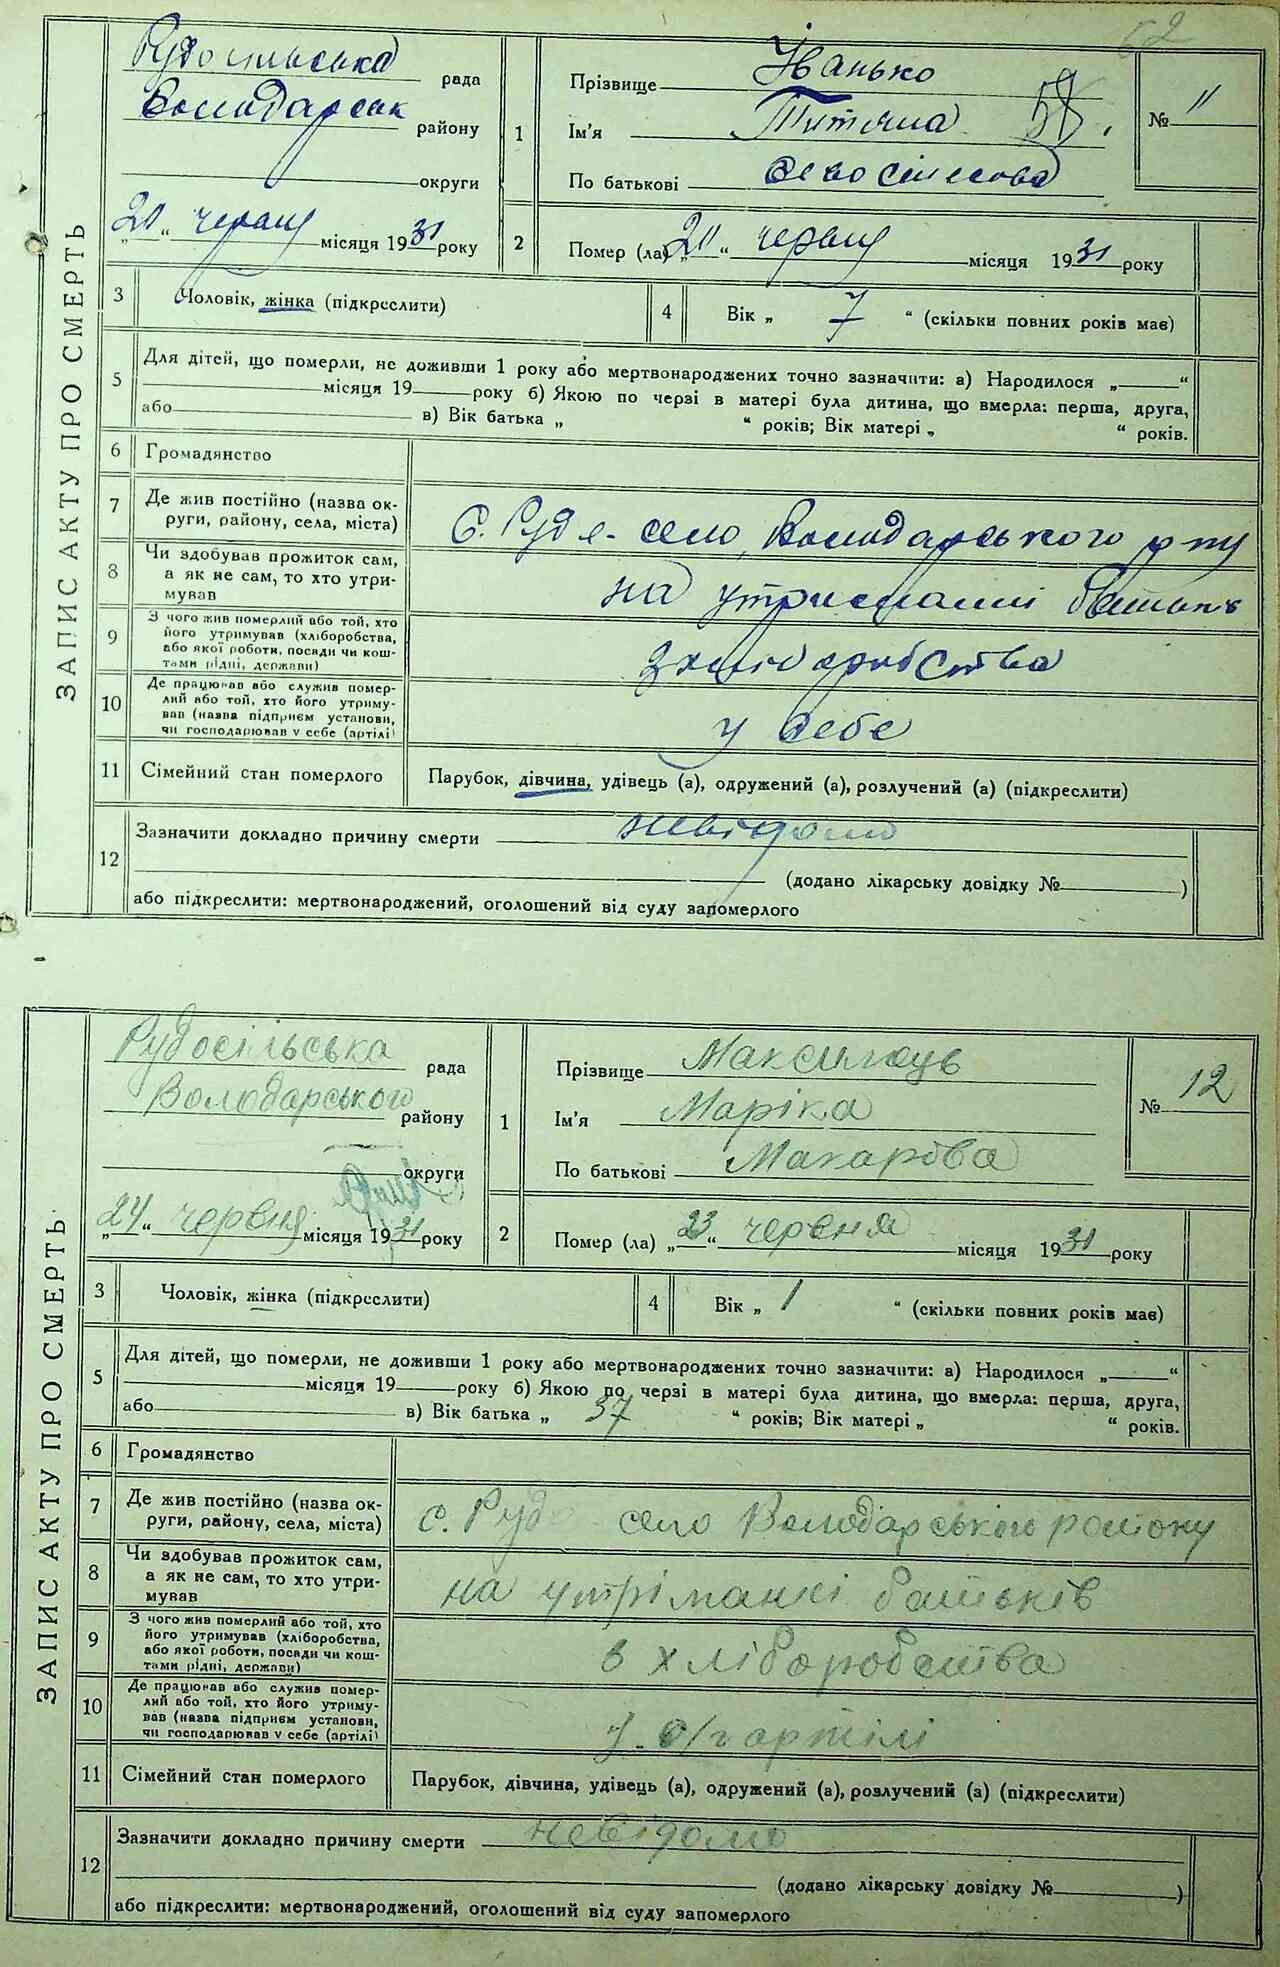 62
ЗАПИС АКТУ ПРО СМЕРТЬ
Рудосільська рада
Володарськ району
округи
"21" червня місяця 1931 року
1
Прізвище Іванько
Ім'я Титяна 58.
По батькові
№ 11
2 Помер (ла) "21" червня місяця 1931 року
3 Чоловік, жінка (підкреслити)
4 Вік „ 7 “ (скільки повних років має)
5 Для дітей, що померли, не доживши 1 року або мертвонароджених точно зазначити: а) Народилося „ “
місяця 19 року б) Якою по черзі в матері була дитина, що вмерла: перша, друга,
або в) Вік батька „ “ років; Вік матері „ “ років.
6 Громадянство
7 Де жив постійно (назва ок-
руги, району, села, міста)
с. Рудє-село, Володарського р ну
8 Чи здобував прожиток сам,
а як не сам, то хто утри-
мував
на утриманні батьків
9 З чого жив померлий або той, хто
його утримував (хліборобства,
або якої роботи, посади чи кош-
тами рідні, держави)
з хліборобства
10 Де працював або служив помер-
лий або той, хто його утриму-
вав (назва підприєм установи,
чи господарював у себе (артілі)
у себе
11 Сімейний стан померлого Парубок, дівчина, удівець (а), одружений (а), розлучений (а) (підкреслити)
12 Зазначити докладно причину смерти невідомо
(додано лікарську довідку № )
або підкреслити: мертвонароджений, оголошений від суду запомерлого
ЗАПИС АКТУ ПРО СМЕРТЬ
Рудосільська рада
Володарського району
округи
„24“ червня місяця 1931 року
1
Прізвище Максимець
Ім'я Маріка
По батькові Макарова
№ 12
2 Помер (ла) „23“ червня місяця 1931 року
3 Чоловік, жінка (підкреслити)
4 Вік „ 1 “ (скільки повних років має)
5 Для дітей, що померли, не доживши 1 року або мертвонароджених точно зазначити: а) Народилося „ “
місяця 19 року б) Якою по черзі в матері була дитина, що вмерла: перша, друга,
або в) Вік батька „ 37 “ років; Вік матері „ “ років.
6 Громадянство
7 Де жив постійно (назва ок-
руги, району, села, міста)
с. Руде село Володарського району
8 Чи здобував прожиток сам,
а як не сам, то хто утри-
мував
на утріманні батьків
9 З чого жив померлий або той, хто
його утримував (хліборобства,
або якої роботи, посади чи кош-
тами рідні, держави)
в хліборобства
10 Де працював або служив помер-
лий або той, хто його утриму-
вав (назва підприєм установи,
чи господарював у себе (артілі)
У с/г артілі
11 Сімейний стан померлого Парубок, дівчина, удівець (а), одружений (а), розлучений (а) (підкреслити)
12 Зазначити докладно причину смерти невідомо
(додано лікарську довідку № )
або підкреслити: мертвонароджений, оголошений від суду запомерлого